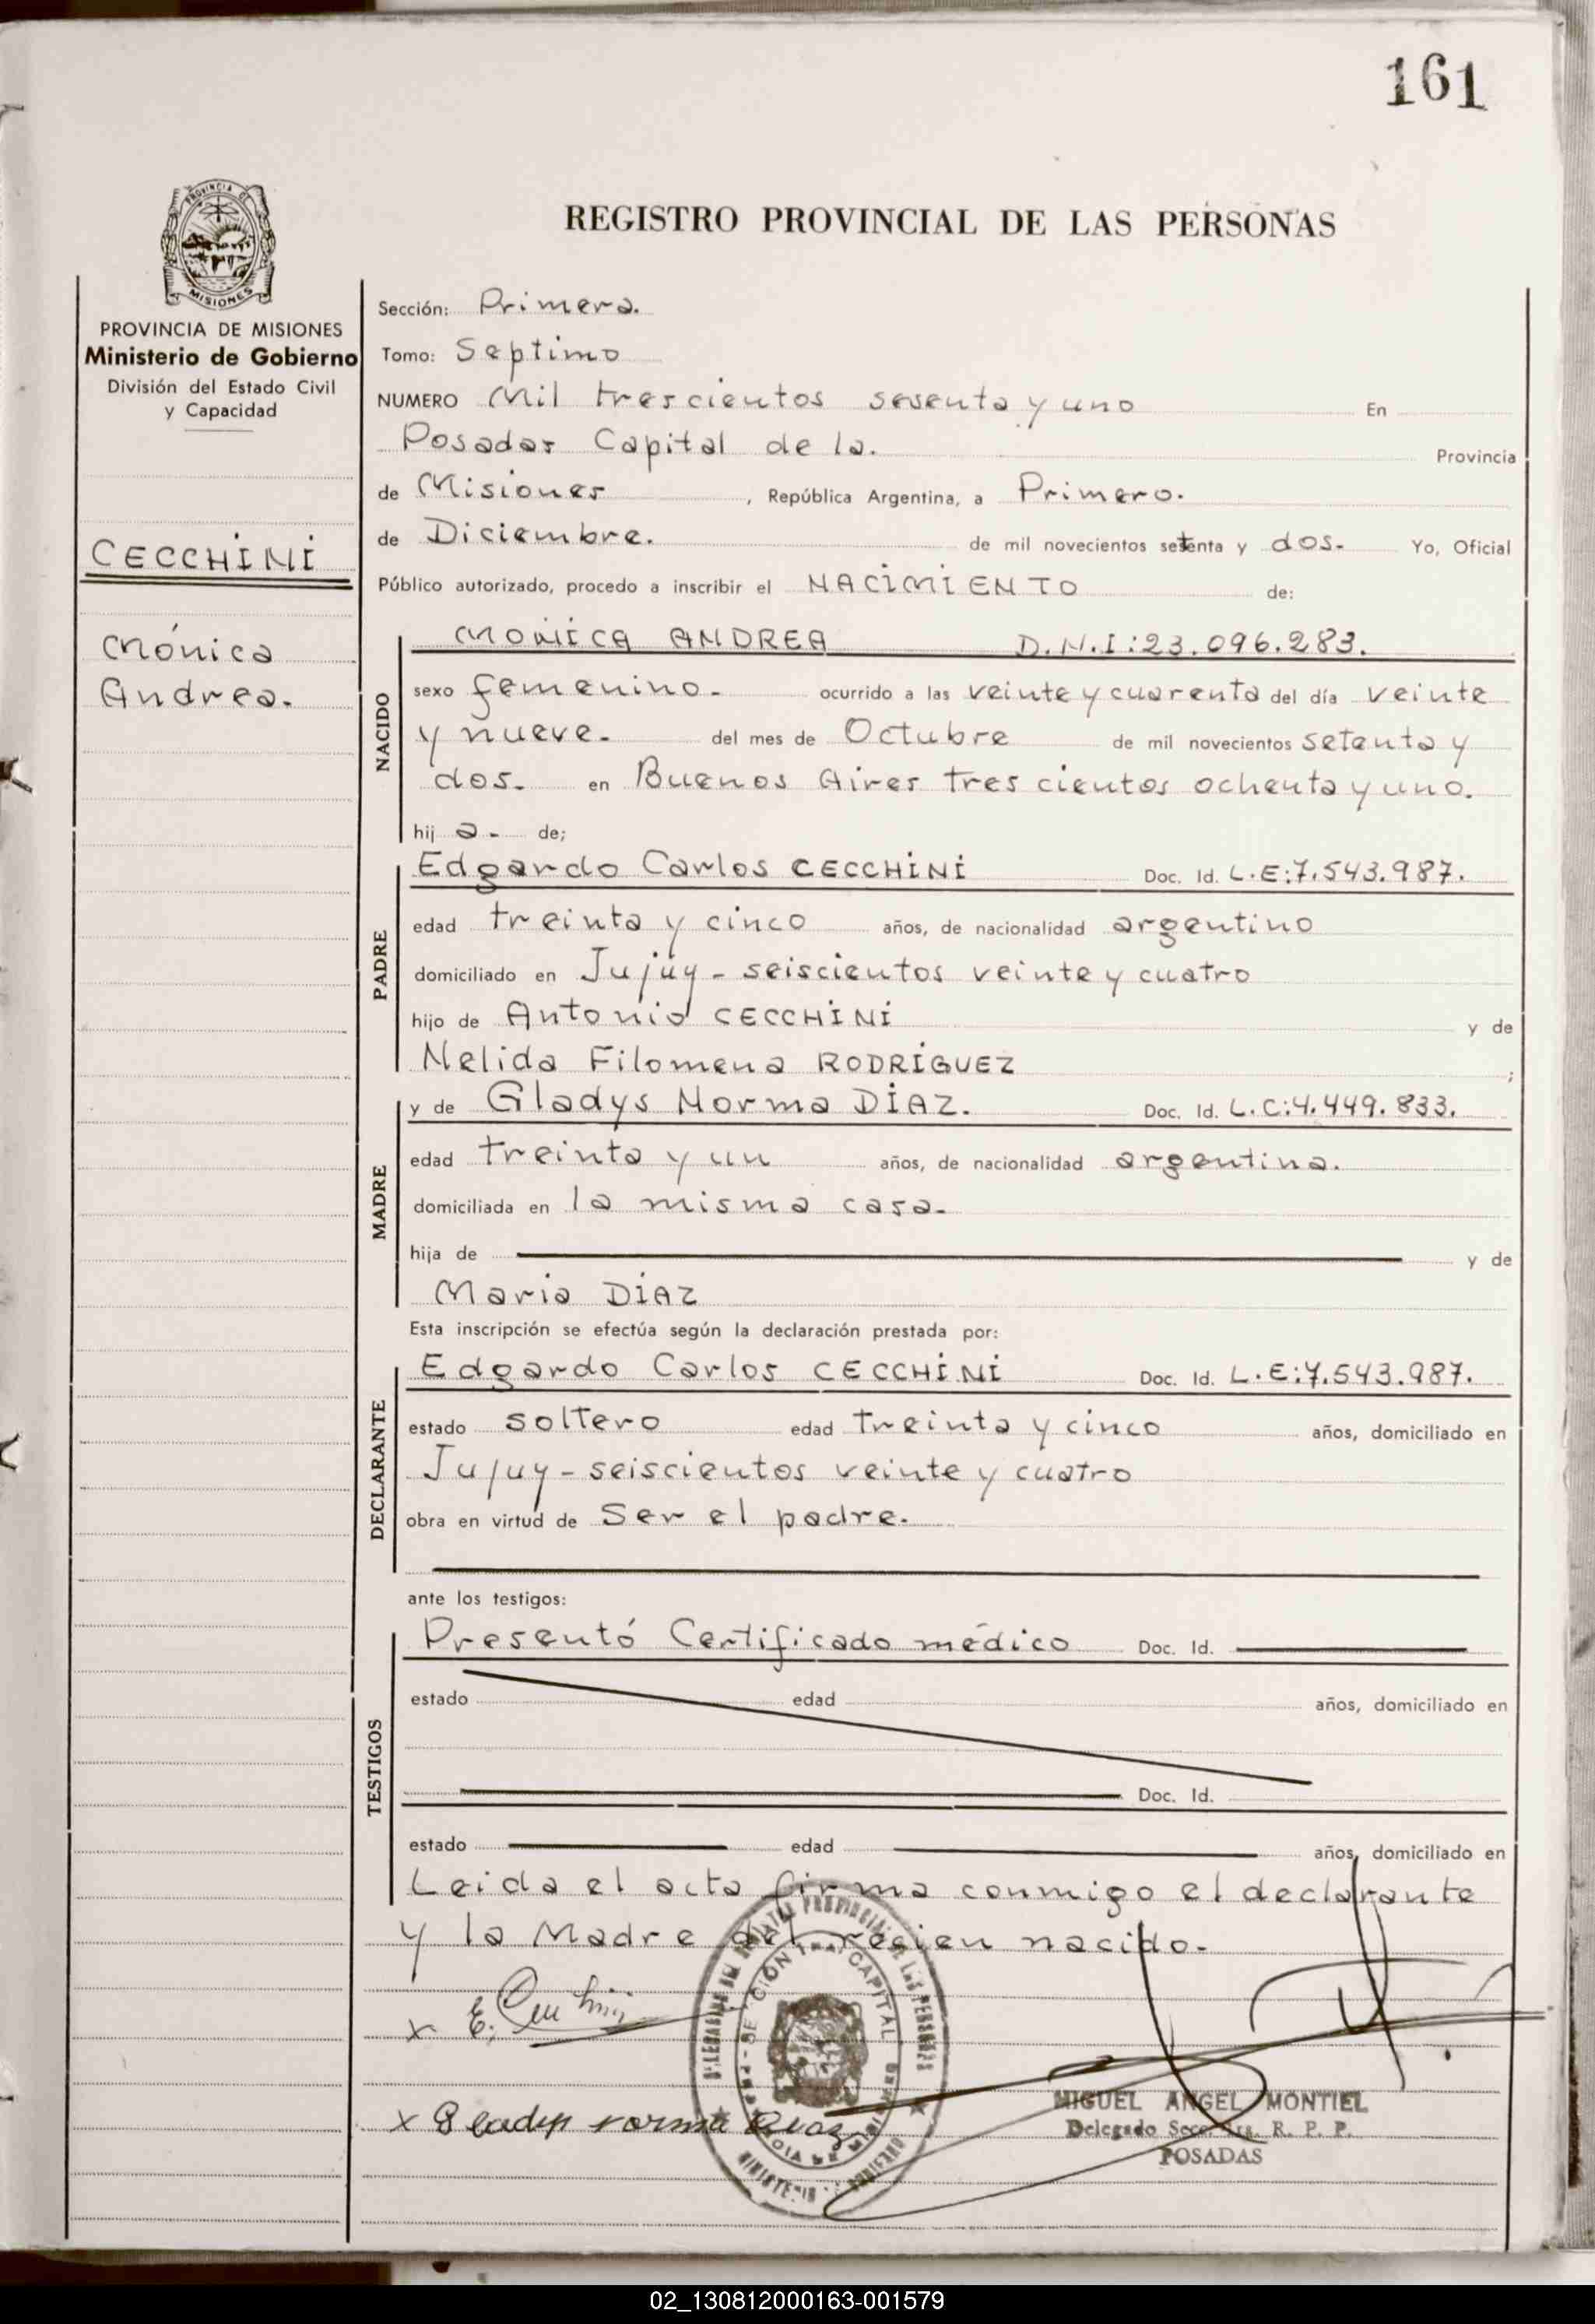 161
PROVINCIA DE
MISIONES
PROVINCIA DE MISIONES
Ministerio de Gobierno
División del Estado Civil
y Capacidad
CECCHINI
Mónica
Andrea.
REGISTRO PROVINCIAL DE LAS PERSONAS
Sección: Primera.
Tomo: Septimo
NUMERO Mil trescientos sesenta y uno En
Posadas Capital de la. Provincia
de Misiones , República Argentina, a Primero.
de Diciembre. de mil novecientos setenta y dos. Yo, Oficial
Público autorizado, procedo a inscribir el NACIMIENTO de:
NACIDO
MONICA ANDREA D.N.I:23.096.283.
sexo femenino. ocurrido a las veinte y cuarenta del día veinte
y nueve. del mes de Octubre de mil novecientos setenta y
dos. en Buenos Aires tres cientos ochenta y uno.
hij a. de;
PADRE
Edgardo Carlos CECCHINI Doc. Id. L.E:7.543.987.
edad treinta y cinco años, de nacionalidad argentino
domiciliado en Jujuy - seiscientos veinte y cuatro
hijo de Antonio CECCHINI y de
Nelida Filomena RODRÍGUEZ ;
MADRE
y de Gladys Norma DÍAZ. Doc. Id. L.C:4.449.833.
edad treinta y un años, de nacionalidad argentina.
domiciliada en la misma casa.
hija de y de
Maria DÍAZ
Esta inscripción se efectúa según la declaración prestada por:
DECLARANTE
Edgardo Carlos CECCHINI Doc. Id. L.E:7.543.987.
estado soltero edad treinta y cinco años, domiciliado en
Jujuy - seiscientos veinte y cuatro
obra en virtud de Ser el padre.
ante los testigos:
TESTIGOS
Presentó Certificado médico Doc. Id.
estado edad años, domiciliado en
Doc. Id.
estado edad años, domiciliado en
Leida el acta firma conmigo el declarante
y la Madre del recien nacido.
x E. Cecchini
x Gladys norma Diaz
CAPITAL
MIGUEL ANGEL MONTIEL
Delegado R. P. P.
POSADAS
02_130812000163-001579